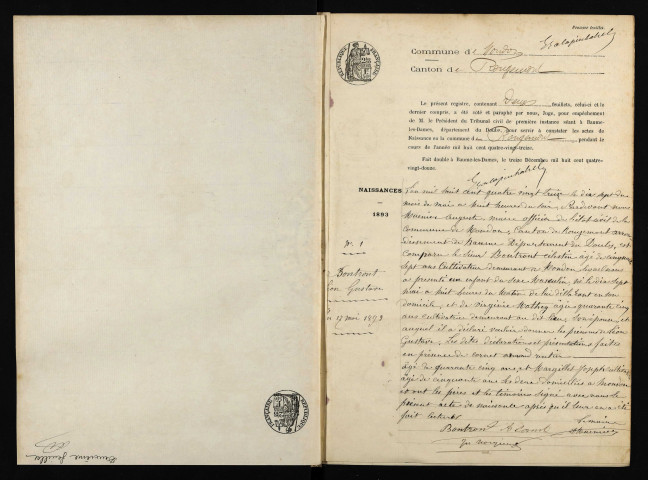 Premier feuillet.
Commune de Mondon
Canton de Rougemont
Le présent registre, contenant deux feuillets, celui-ci et le
dernier compris, a été coté et paraphé par nous, Juge, pour empêchement
de M. le Président du Tribunal civil de première instance séant à Baume-
les-Dames, département du Doubs, pour servir à constater les actes de
Naissance en la commune de Mondon, pendant le
cours de l'année mil huit cent quatre-vingt-treize.
Fait double à Baume-les-Dames, le treize Décembre mil huit cent quatre-
vingt-douze.
NAISSANCES
1893
N° 1
Bontront
Léon Gustave
17 mai 1893
L'an mil huit cent quatre vingt treize le dix sept du
mois de mai à huit heures du soir, Pardevant nous
Meunier Auguste, maire officier de l'état civil de la
Commune de Mondon, Canton de Rougemont arron
dissement de Baume Département du Doubs, est
Comparu le sieur Bontront Célestin âgé de cinquante
sept ans Cultivateur demeurant à Mondon lequel nous
a présenté un enfant du sexe Masculin, né le dix sept
mai à huit heures du matin de lui déclarant en son
domicile, et de Virginie Mathey âgée quarante cinq
ans cultivatrice demeurant au dit lieu, son épouse, et
auquel il a déclaré vouloir donner les prénoms de Léon
Gustave, Les dites déclaration et présentation faites
en présence de Cornet
âgé de quarante cinq ans, et Margillet Joseph
âgé de cinquante ans les deux domiciliés à Mondon
et ont les père et les témoins signé avec nous le
présent acte de naissance après qu'il leur en a été
fait lecture
Le maire
Bontront Meunier
Deuxième feuillet